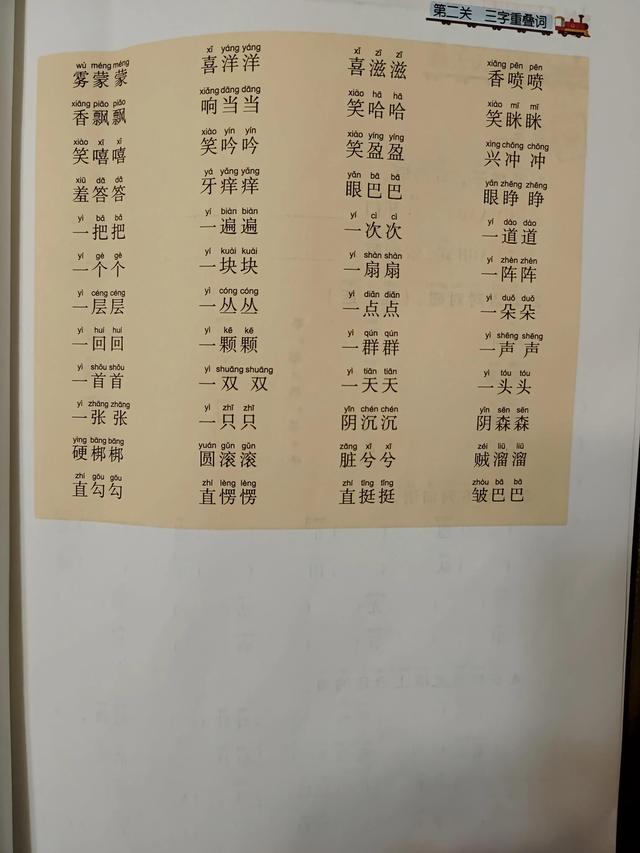 第二关 三字重叠词
wù méng méng xǐ yáng yáng xǐ zī zī xiāng pēn pēn
雾蒙蒙 喜洋洋 喜滋滋 香喷喷
xiāng piāo piāo xiǎng dāng dāng xiào hā hā xiào mī mī
香飘飘 响当当 笑哈哈 笑眯眯
xiào xī xī xiào yín yín xiào yíng yíng xìng chōng chōng
笑嘻嘻 笑吟吟 笑盈盈 兴冲冲
xiū dā dā yá yǎng yǎng yǎn bā bā yǎn zhēng zhēng
羞答答 牙痒痒 眼巴巴 眼睁睁
yì bǎ bǎ yí biàn biàn yí cì cì yí dào dào
一把把 一遍遍 一次次 一道道
yí gè gè yí kuài kuài yí shàn shàn yí zhèn zhèn
一个个 一块块 一扇扇 一阵阵
yì céng céng yì cóng cóng yì diǎn diǎn yì duǒ duǒ
一层层 一丛丛 一点点 一朵朵
yì huí huí yì kē kē yì qún qún yì shēng shēng
一回回 一颗颗 一群群 一声声
yì shǒu shǒu yì shuāng shuāng yì tiān tiān yì tóu tóu
一首首 一双双 一天天 一头头
yì zhāng zhāng yì zhī zhī yīn chén chén yīn sēn sēn
一张张 一只只 阴沉沉 阴森森
yìng bāng bāng yuán gǔn gǔn zāng xī xī zéi liū liū
硬梆梆 圆滚滚 脏兮兮 贼溜溜
zhí gōu gōu zhí lèng lèng zhí tǐng tǐng zhòu bā bā
直勾勾 直愣愣 直挺挺 皱巴巴